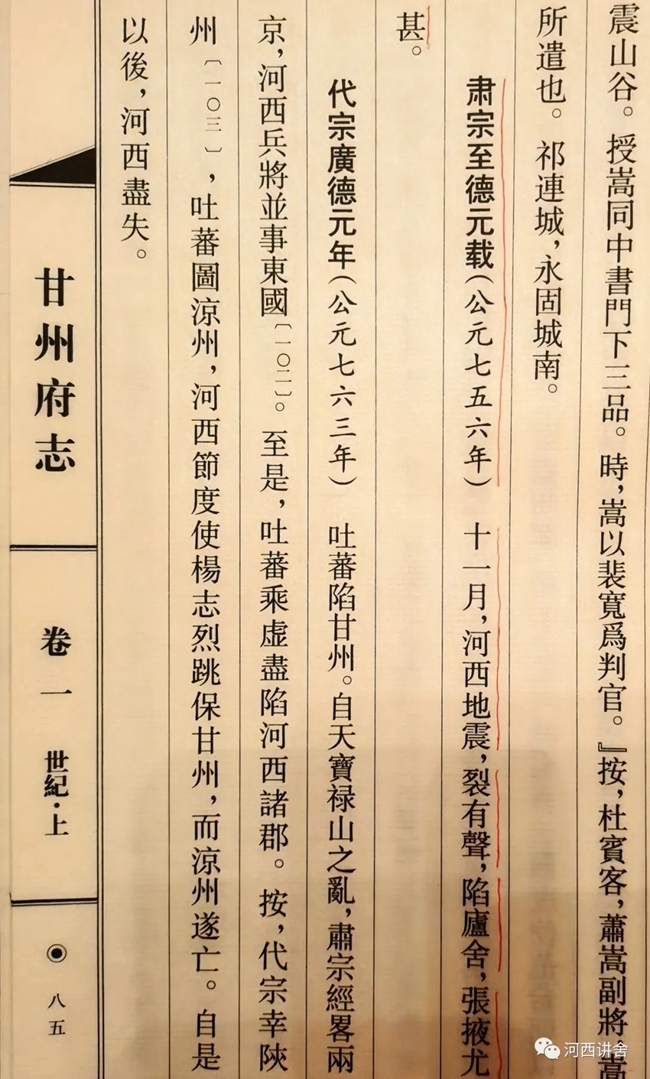 震山谷。授嵩同中書門下三品。時，嵩以裴寬爲判官。』按，杜賓客，蕭嵩副將，嵩
所遣也。祁連城，永固城南。
肅宗至德元载（公元七五六年） 十一月，河西地震，裂有聲，陷廬舍，張掖尤
甚。
代宗廣德元年（公元七六三年） 吐蕃陷甘州。自天寶禄山之亂，肅宗經畧兩
京，河西兵將並事東國〔一〇二〕。至是，吐蕃乘虚盡陷河西諸郡。按，代宗幸陝
州〔一〇三〕，吐蕃圖涼州，河西節度使楊志烈跳保甘州，而涼州遂亡。自是
以後，河西盡失。
甘州府志
卷一 世紀·上
八五
河西讲舍